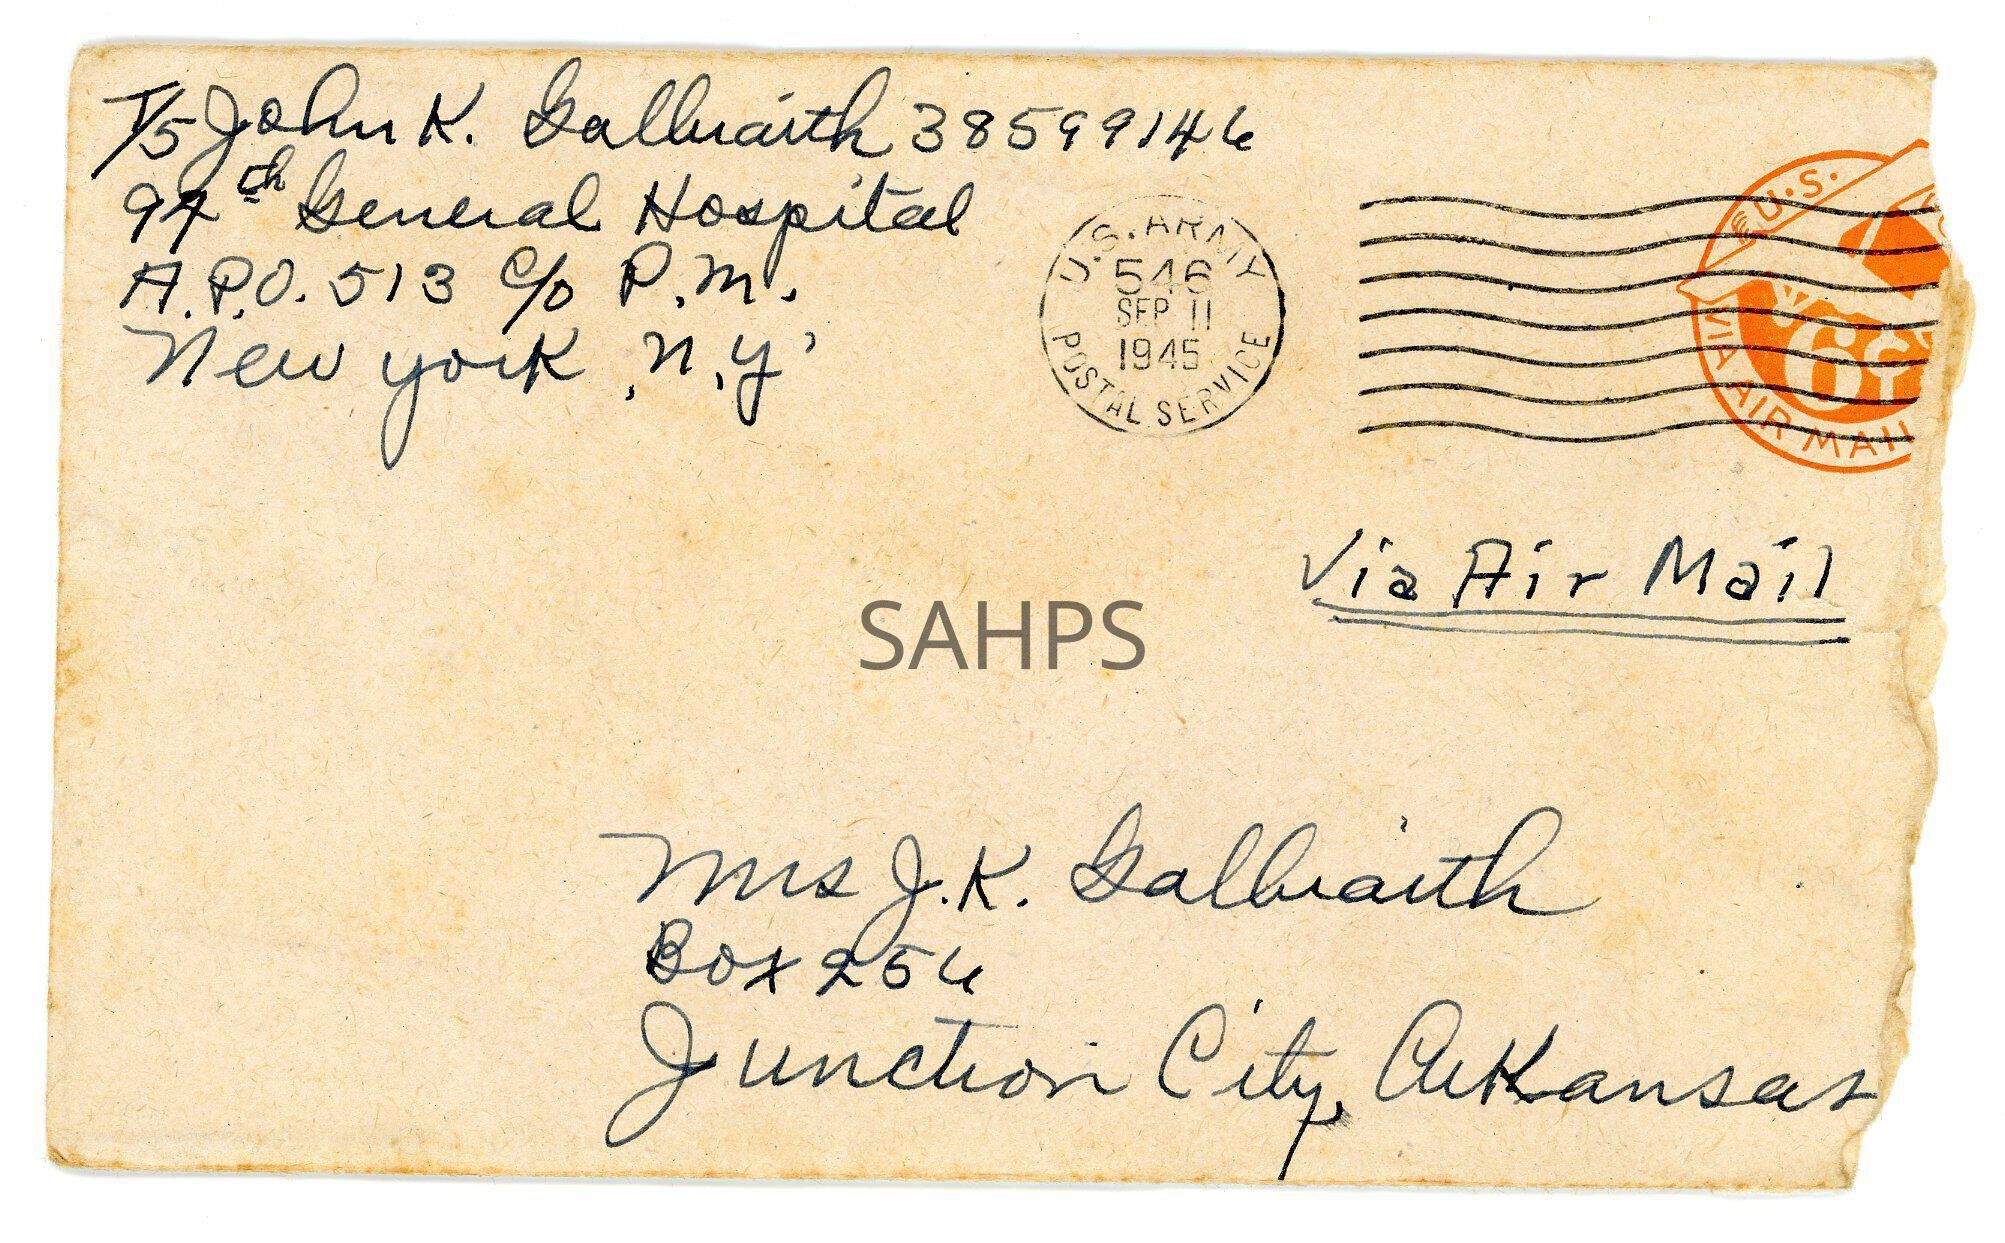 T/5 John K. Galbraith 38599146
97th General Hospital
A.P.O. 513 c/o P.M.
New York, N.Y.
U.S. ARMY
546
SEP 11
1945
POSTAL SERVICE
U.S.
6¢
VIA AIR MAIL
Via Air Mail
SAHPS
Mrs J.K. Galbraith
Box 256
Junction City, Arkansas